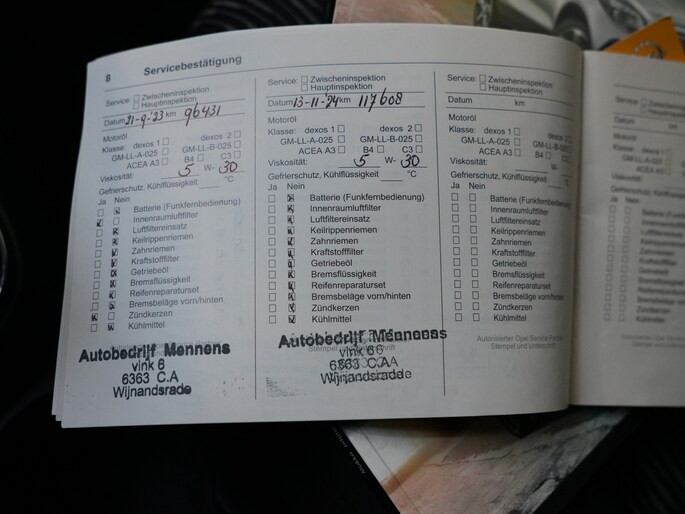 8 Servicebestätigung
Service: Zwischeninspektion
Hauptinspektion
Datum 21-9-'23 km 96431
Motoröl
Klasse: dexos 1 dexos 2
GM-LL-A-025 GM-LL-B-025
ACEA A3 B4 C3
Viskosität: 5 W- 30
Gefrierschutz, Kühlflüssigkeit °C
Ja Nein
Batterie (Funkfernbedienung)
Innenraumluftfilter
Luftfiltereinsatz
Keilrippenriemen
Zahnriemen
Kraftstofffilter
Getriebeöl
Bremsflüssigkeit
Reifenreparaturset
Bremsbeläge vorn/hinten
Zündkerzen
Kühlmittel
Autobedrijf Mennens
vink 6
6363 C.A
Wijnandsrade
Service: Zwischeninspektion
Hauptinspektion
Datum 13-11-'24 km 117608
Motoröl
Klasse: dexos 1 dexos 2
GM-LL-A-025 GM-LL-B-025
ACEA A3 B4 C3
Viskosität: 5 W- 30
Gefrierschutz, Kühlflüssigkeit °C
Ja Nein
Batterie (Funkfernbedienung)
Innenraumluftfilter
Luftfiltereinsatz
Keilrippenriemen
Zahnriemen
Kraftstofffilter
Getriebeöl
Bremsflüssigkeit
Reifenreparaturset
Bremsbeläge vorn/hinten
Zündkerzen
Kühlmittel
Autobedrijf Mennens
vink 6
6363 C.A
Wijnandsrade
Service: Zwischeninspektion
Hauptinspektion
Datum km
Motoröl
Klasse: dexos 1 dexos 2
GM-LL-A-025 GM-LL-B-025
ACEA A3 B4 C3
Viskosität: W-
Gefrierschutz, Kühlflüssigkeit °C
Ja Nein
Batterie (Funkfernbedienung)
Innenraumluftfilter
Luftfiltereinsatz
Keilrippenriemen
Zahnriemen
Kraftstofffilter
Getriebeöl
Bremsflüssigkeit
Reifenreparaturset
Bremsbeläge vorn/hinten
Zündkerzen
Kühlmittel
Autorisierter Opel Service Partner
Stempel und Unterschrift